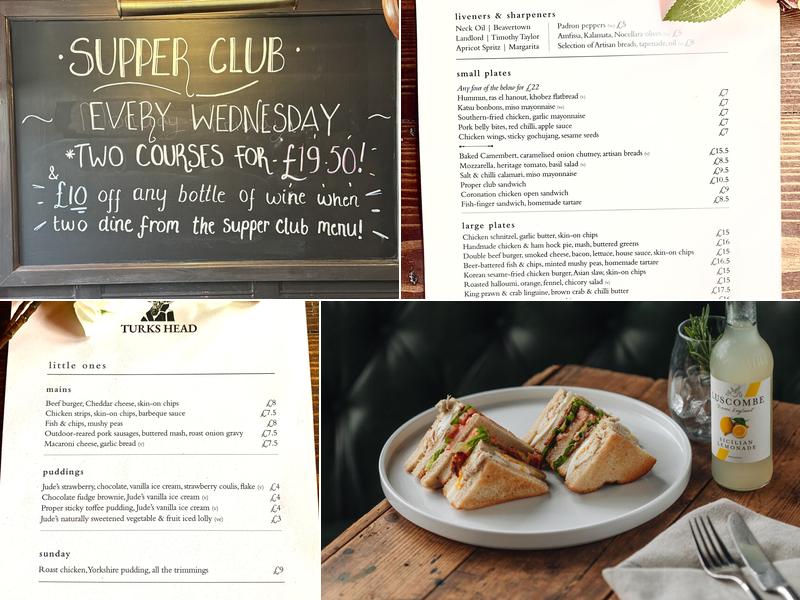 SUPPER CLUB
EVERY WEDNESDAY
*TWO COURSES FOR - £19.50!
&
£10 off any bottle of wine when
two dine from the supper club menu!
liveners & sharpeners
Neck Oil | Beavertown
Landlord | Timothy Taylor
Apricot Spritz | Margarita
Padron peppers (ve) £5
Amfisa, Kalamata, Nocellara olives (ve) £5
Selection of Artisan breads, tapenade, oil (ve) £8
small plates
Any four of the below for £22
Hummus, ras el hanout, khobez flatbread (v) £7
Katsu bonbons, miso mayonnaise (ve) £7
Southern-fried chicken, garlic mayonnaise £7
Pork belly bites, red chilli, apple sauce £7
Chicken wings, sticky gochujang, sesame seeds £7
Baked Camembert, caramelised onion chutney, artisan breads (v) £15.5
Mozzarella, heritage tomato, basil salad (v) £8.5
Salt & chilli calamari, miso mayonnaise £9.5
Proper club sandwich £10.5
Coronation chicken open sandwich £9
Fish-finger sandwich, homemade tartare £8.5
large plates
Chicken schnitzel, garlic butter, skin-on chips £15
Handmade chicken & ham hock pie, mash, buttered greens £16
Double beef burger, smoked cheese, bacon, lettuce, house sauce, skin-on chips £15
Beer-battered fish & chips, minted mushy peas, homemade tartare £16.5
Korean sesame-fried chicken burger, Asian slaw, skin-on chips £15
Roasted halloumi, orange, fennel, chicory salad (v) £15
King prawn & crab linguine, brown crab & chilli butter £17.5
TURKS HEAD
little ones
mains
Beef burger, Cheddar cheese, skin-on chips £8
Chicken strips, skin-on chips, barbeque sauce £7.5
Fish & chips, mushy peas £8
Outdoor-reared pork sausages, buttered mash, roast onion gravy £7.5
Macaroni cheese, garlic bread (v) £7.5
puddings
Jude's strawberry, chocolate, vanilla ice cream, strawberry coulis, flake (v) £4
Chocolate fudge brownie, Jude's vanilla ice cream (v) £4
Proper sticky toffee pudding, Jude's vanilla ice cream (v) £4
Jude's naturally sweetened vegetable & fruit iced lolly (ve) £3
sunday
Roast chicken, Yorkshire pudding, all the trimmings £9
LUSCOMBE
SICILIAN
LEMONADE